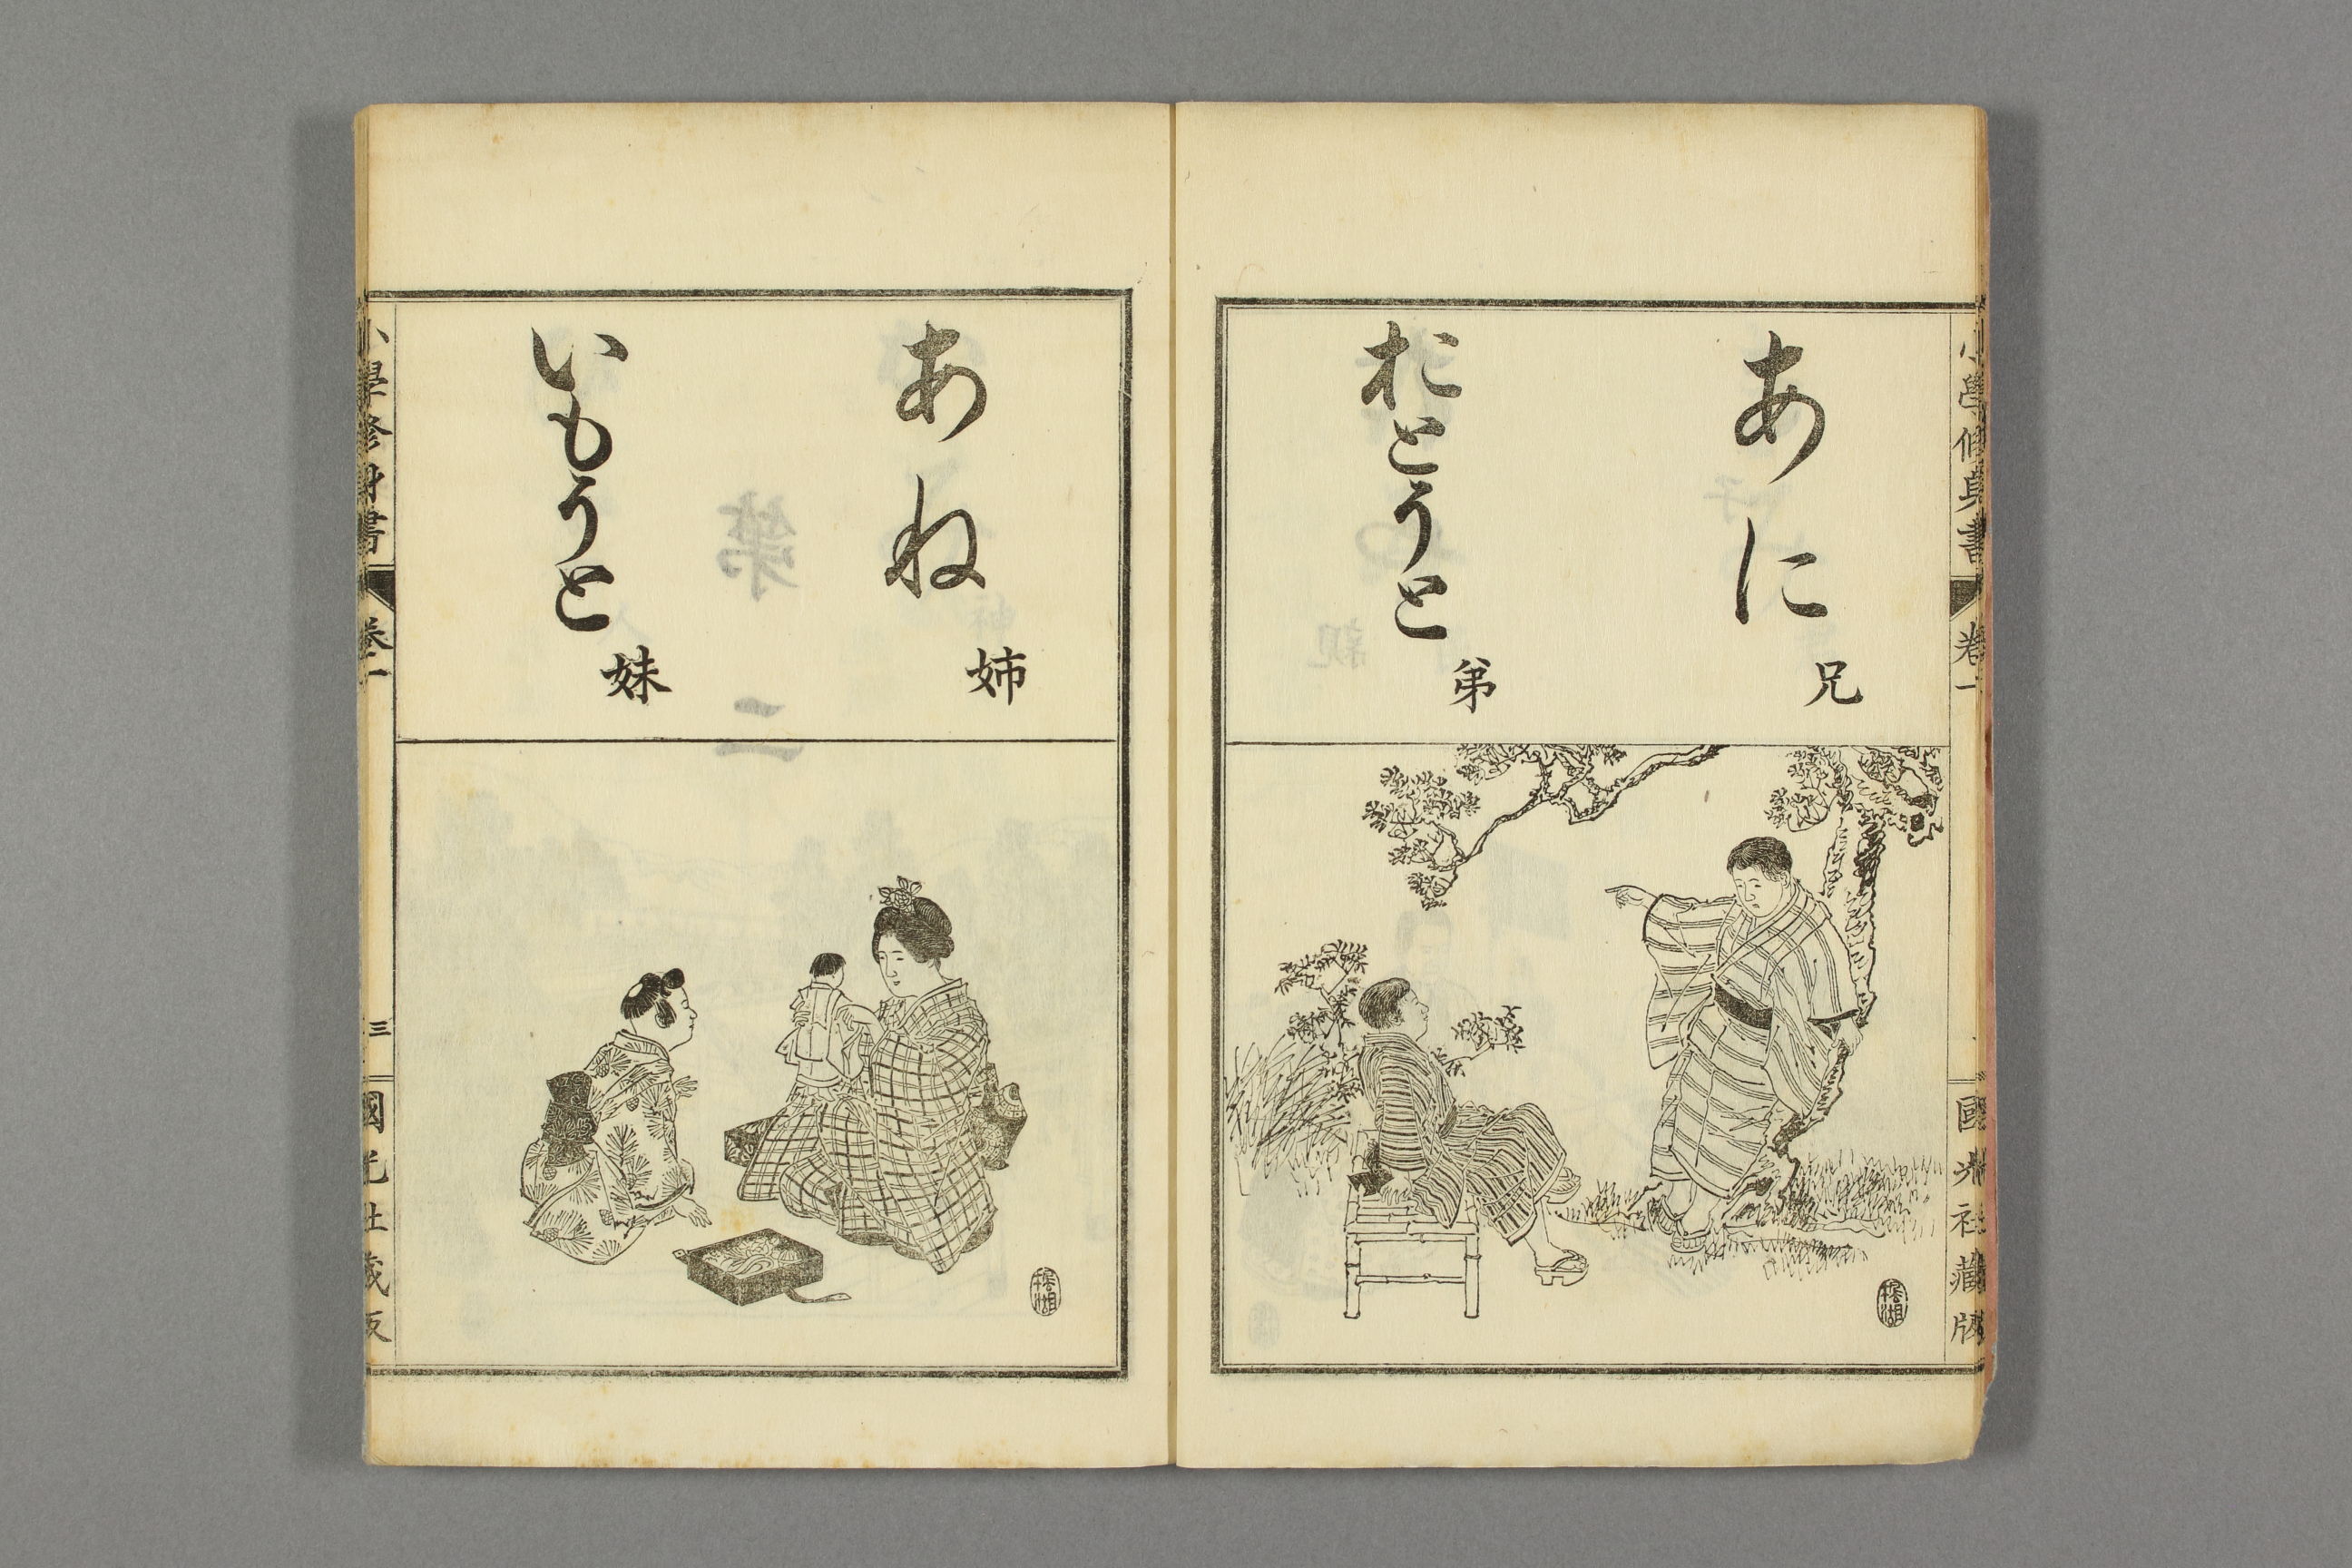 小學修身書
卷一
國光社藏版
あに
兄
おとうと
弟
あね
姉
いもうと
妹
小學修身書
卷一
三
國光社藏版